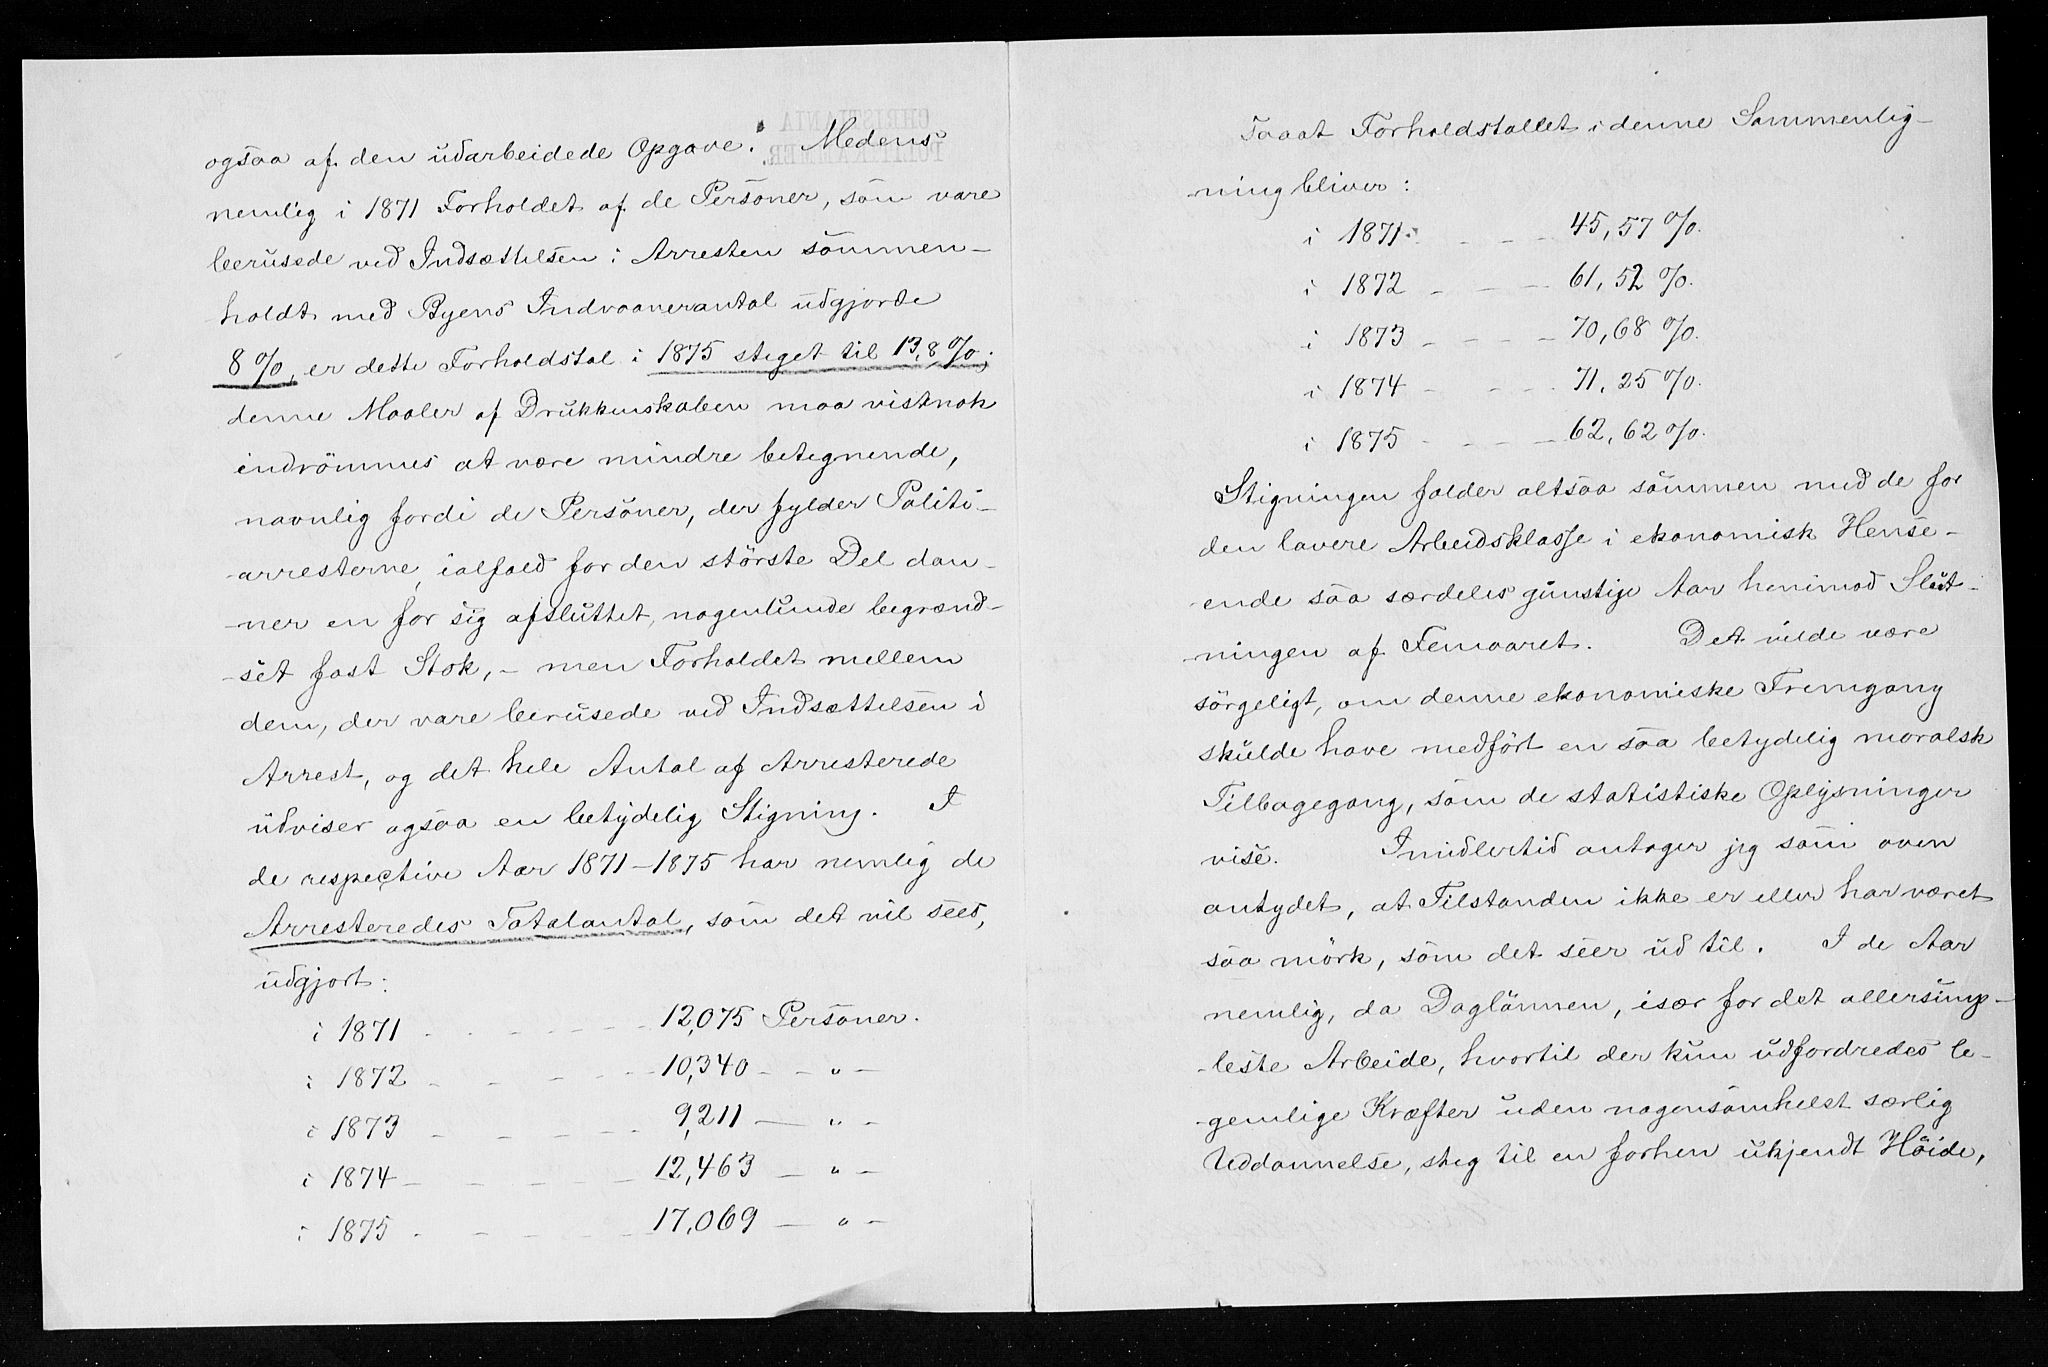 ogsaa af den udarbeidede Opgave. Medens
nemlig i 1871 Forholdet af de Personer, som vare
berusede ved Indsættelsen i Arresten sammen-
holdt med Byens Indvaanerantal udgjorde
8 %, er dette Forholdstal i 1875 steget til 13,8 %;
denne Maaler af Drukkenskaben maa vistnok
indrömmes at være mindre betegnende,
navnlig fordi de Personer, der fylder Politi-
-arresterne, ialfald for den störste Del dan-
-ner en for sig afsluttet, nogenlunde begrænd-
-set fast Stok, - men Forholdet mellem
dem, der vare berusede ved Indsættelsen i
Arrest, og det hele Antal af Arresterede
udviser ogsaa en betydelig Stigning. I
de respective Aar 1871-1875 har nemlig de
Arresteredes Totalantal, som det vil sees,
udgjort:
i 1871 - - - - - 12,075 Personer.
i 1872 - - - - - 10,340 - - " -
i 1873 - - - - - 9,211 - " -
i 1874 - - - - - 12,463 - " -
i 1875 - - - - - 17,069 - " -
CHRISTIANIA
POLITIKAMMER.
saaat Forholdstallet i denne Sammenlig-
-ning bliver:
i 1871 - - - 45,57 %.
i 1872 - - - 61,52 %.
i 1873 - - - 70,68 %.
i 1874 - - - 71,25 %.
i 1875 - - - 62,62 %.
Stigningen falder altsaa sammen med de for
den lavere Arbeidsklasse i ekonomisk Hense-
-ende saa særdeles gunstige Aar henimod Slut-
-ningen af Femaaret. Det vilde være
sörgeligt, om denne ekonomiske Fremgang
skulde have medfört en saa betydelig moralsk
Tilbagegang, som de statistiske Oplysninger
vise. Imidlertid antager jeg som oven
antydet, at Tilstanden ikke er eller har været
saa mörk, som det seer ud til. I de Aar
nemlig, da Daglönnen, især for det allersimp-
-leste Arbeide, hvortil der kun udfordredes le-
-gemlige Kræfter uden nogensomhelst særlig
Uddannelse, steg til en forhen ukjendt Höide,